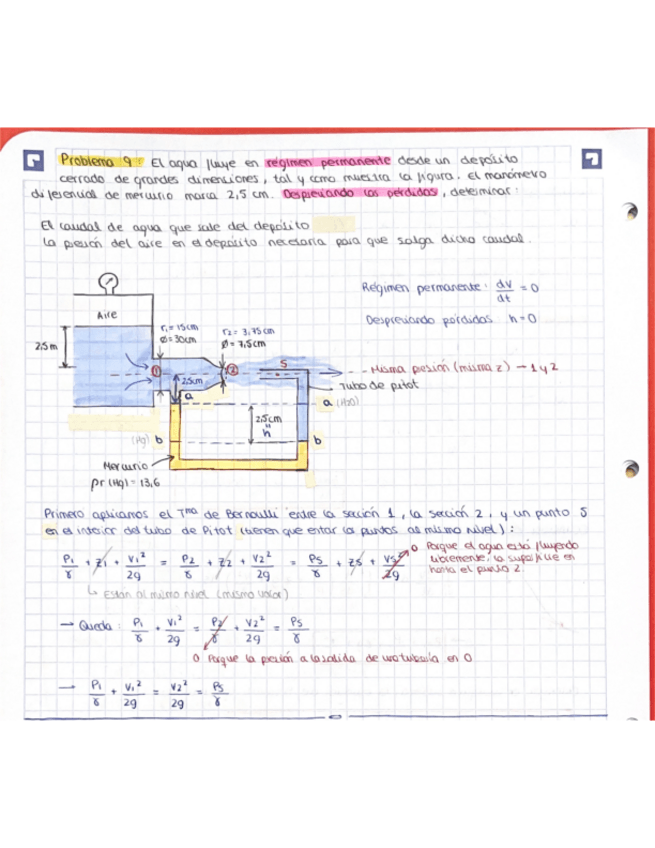 Problema 9: El agua fluye en régimen permanente desde un depósito
cerrado de grandes dimensiones, tal y como muestra la figura. El manómetro
diferencial de mercurio marca 2,5 cm. Despreciando las pérdidas, determinar:
El caudal de agua que sale del depósito
La presión del aire en el depósito necesaria para que salga dicho caudal.
Régimen permanente: dV/dt = 0
Despreciando pérdidas h=0
Aire
2,5m
r₁ = 15cm
Ø = 30cm
r₂ = 3,75cm
Ø = 7,5cm
1
2
5
Misma presión (misma z) → 1 y 2
Tubo de pitot
2,5cm
a
a (H₂O)
2,5cm
"
h
(Hg) b
b
Mercurio
ρr (Hg) = 13,6
Primero aplicamos el Tᵐᵃ de Bernoulli entre la sección 1, la sección 2, y un punto 5
en el interior del tubo de Pitot (tienen que estar los puntos al mismo nivel):
P₁/γ + z₁ + V₁²/2g = P₂/γ + z₂ + V₂²/2g = P₅/γ + z₅ + V₅²/2g
0 Porque el agua está fluyendo
libremente, la superficie es
hasta el punto 2.
↳ Están al mismo nivel (mismo valor)
→ Queda: P₁/γ + V₁²/2g = P₂/γ + V₂²/2g = P₅/γ
0 Porque la presión a la salida de una tubería es 0
→ P₁/γ + V₁²/2g = V₂²/2g = P₅/γ